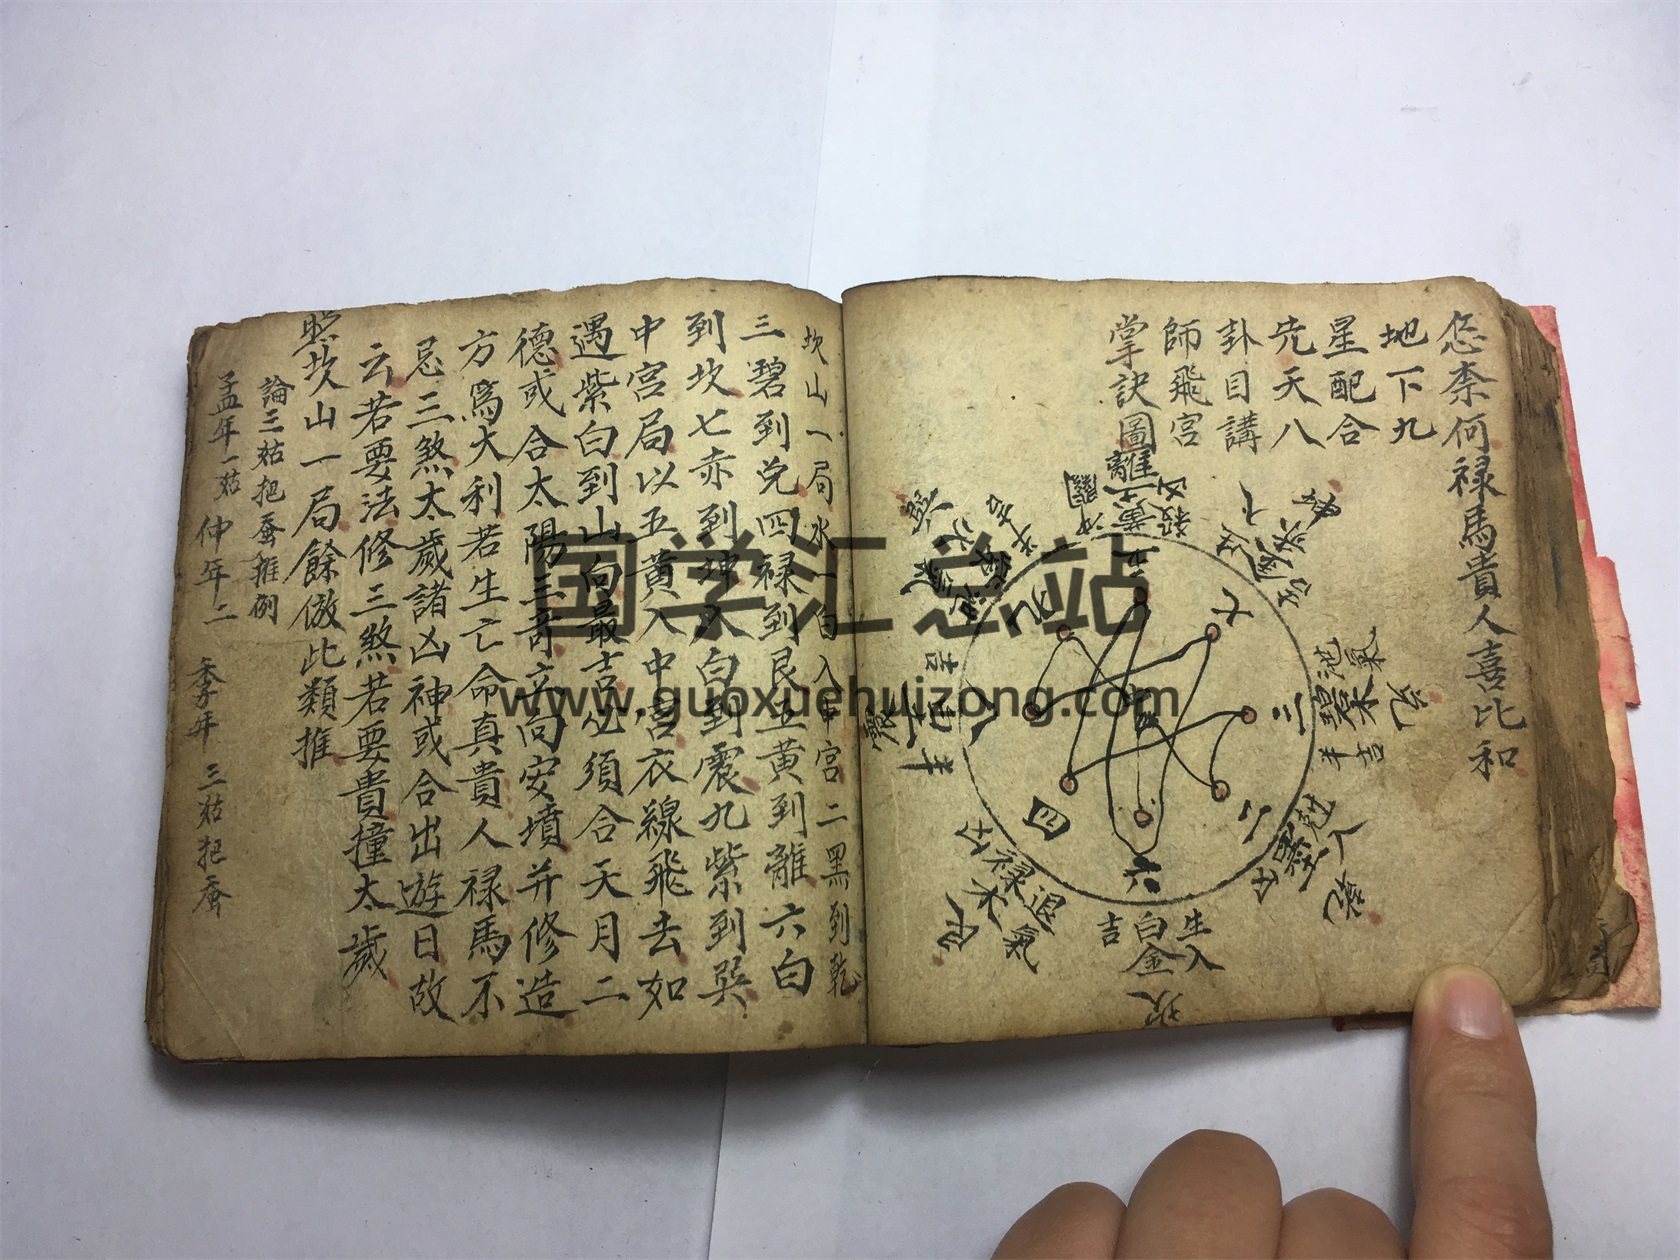 怎奈何禄馬貴人喜比和
地下九
星配合
先天八
卦目講
師飛宮
掌訣圖
離
五
七
三
二
六
四
八
九
碧木
吉
半吉
生入
白金
吉
坎
退氣
禄木
艮
兌
震
坎山一局水一白入中宮二黑到乾
三碧到兌四禄到艮五黄到離六白
到坎七赤到坤八白到震九紫到巽
中宮局以五黄入中宮衣線飛去如
遇紫白到山向最吉必須合天月二
德或合太陽三奇立向安墳并修造
方為大利若生亡命真貴人禄馬不
忌三煞太歲諸凶神或合出遊日故
云若要法修三煞若要貴撞太歲
照坎山一局餘倣此類推
論三姑把蚕推例
孟年一姑 仲年二 季年三姑把蚕
国学汇总站
www.guoxuehuizong.com